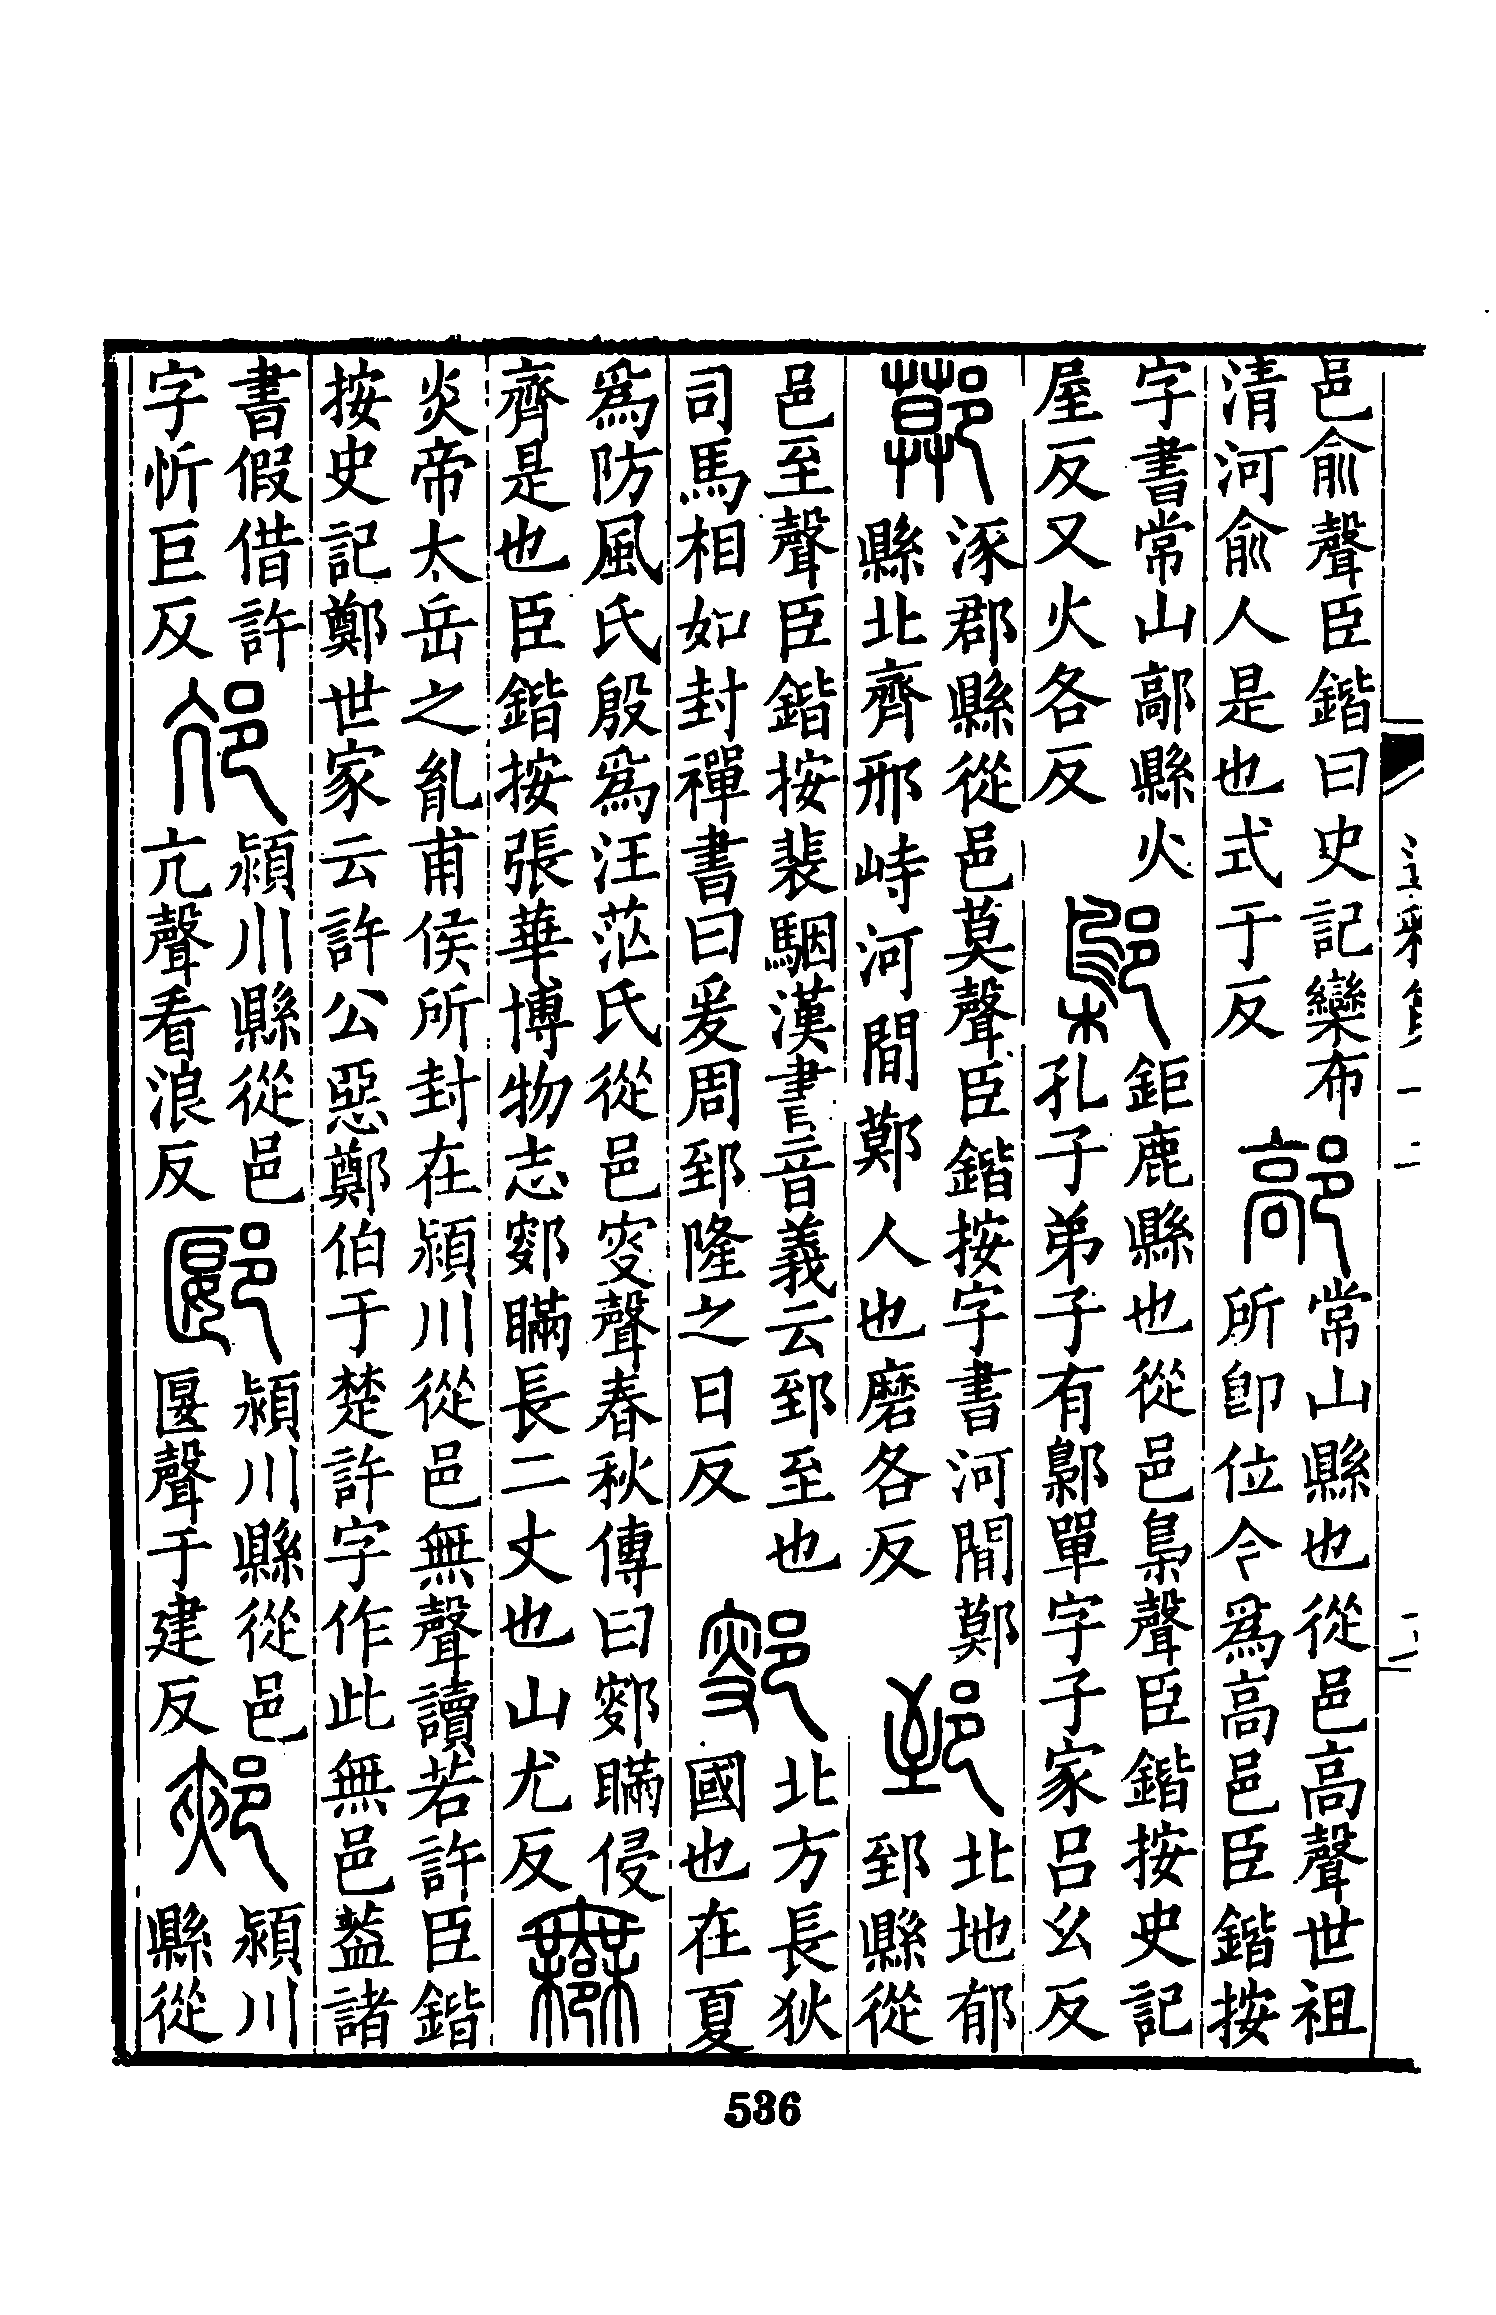 邑俞聲臣鍇曰史記欒布
清河俞人是也式于反
鄗
常山縣也從邑高聲世祖
所卽位今爲高邑臣鍇按
字書常山鄗縣火
屋反又火各反
鄡
鉅鹿縣也從邑梟聲臣鍇按史記
孔子弟子有鄡單字子家呂幺反
鄚
涿郡縣從邑莫聲臣鍇按字書河閒鄭
縣北齊邢峙河閒鄭人也磨各反
郅
北地郁
郅縣從
邑至聲臣鍇按裴駰漢書音義云郅至也
司馬相如封禪書曰爰周郅隆之日反
鄋
北方長狄
國也在夏
爲防風氏殷爲汪茫氏從邑叜聲春秋傳曰鄋瞞侵
齊是也臣鍇按張華博物志鄋瞞長二丈也山尤反
鄦
炎帝太岳之胤甫侯所封在潁川從邑無聲讀若許臣鍇
按史記鄭世家云許公惡鄭伯于楚許字作此無邑葢諸
書假借許
字忻巨反
邟
潁川縣從邑
亢聲看浪反
郾
潁川縣從邑
匽聲于建反
郟
潁川
縣從
536